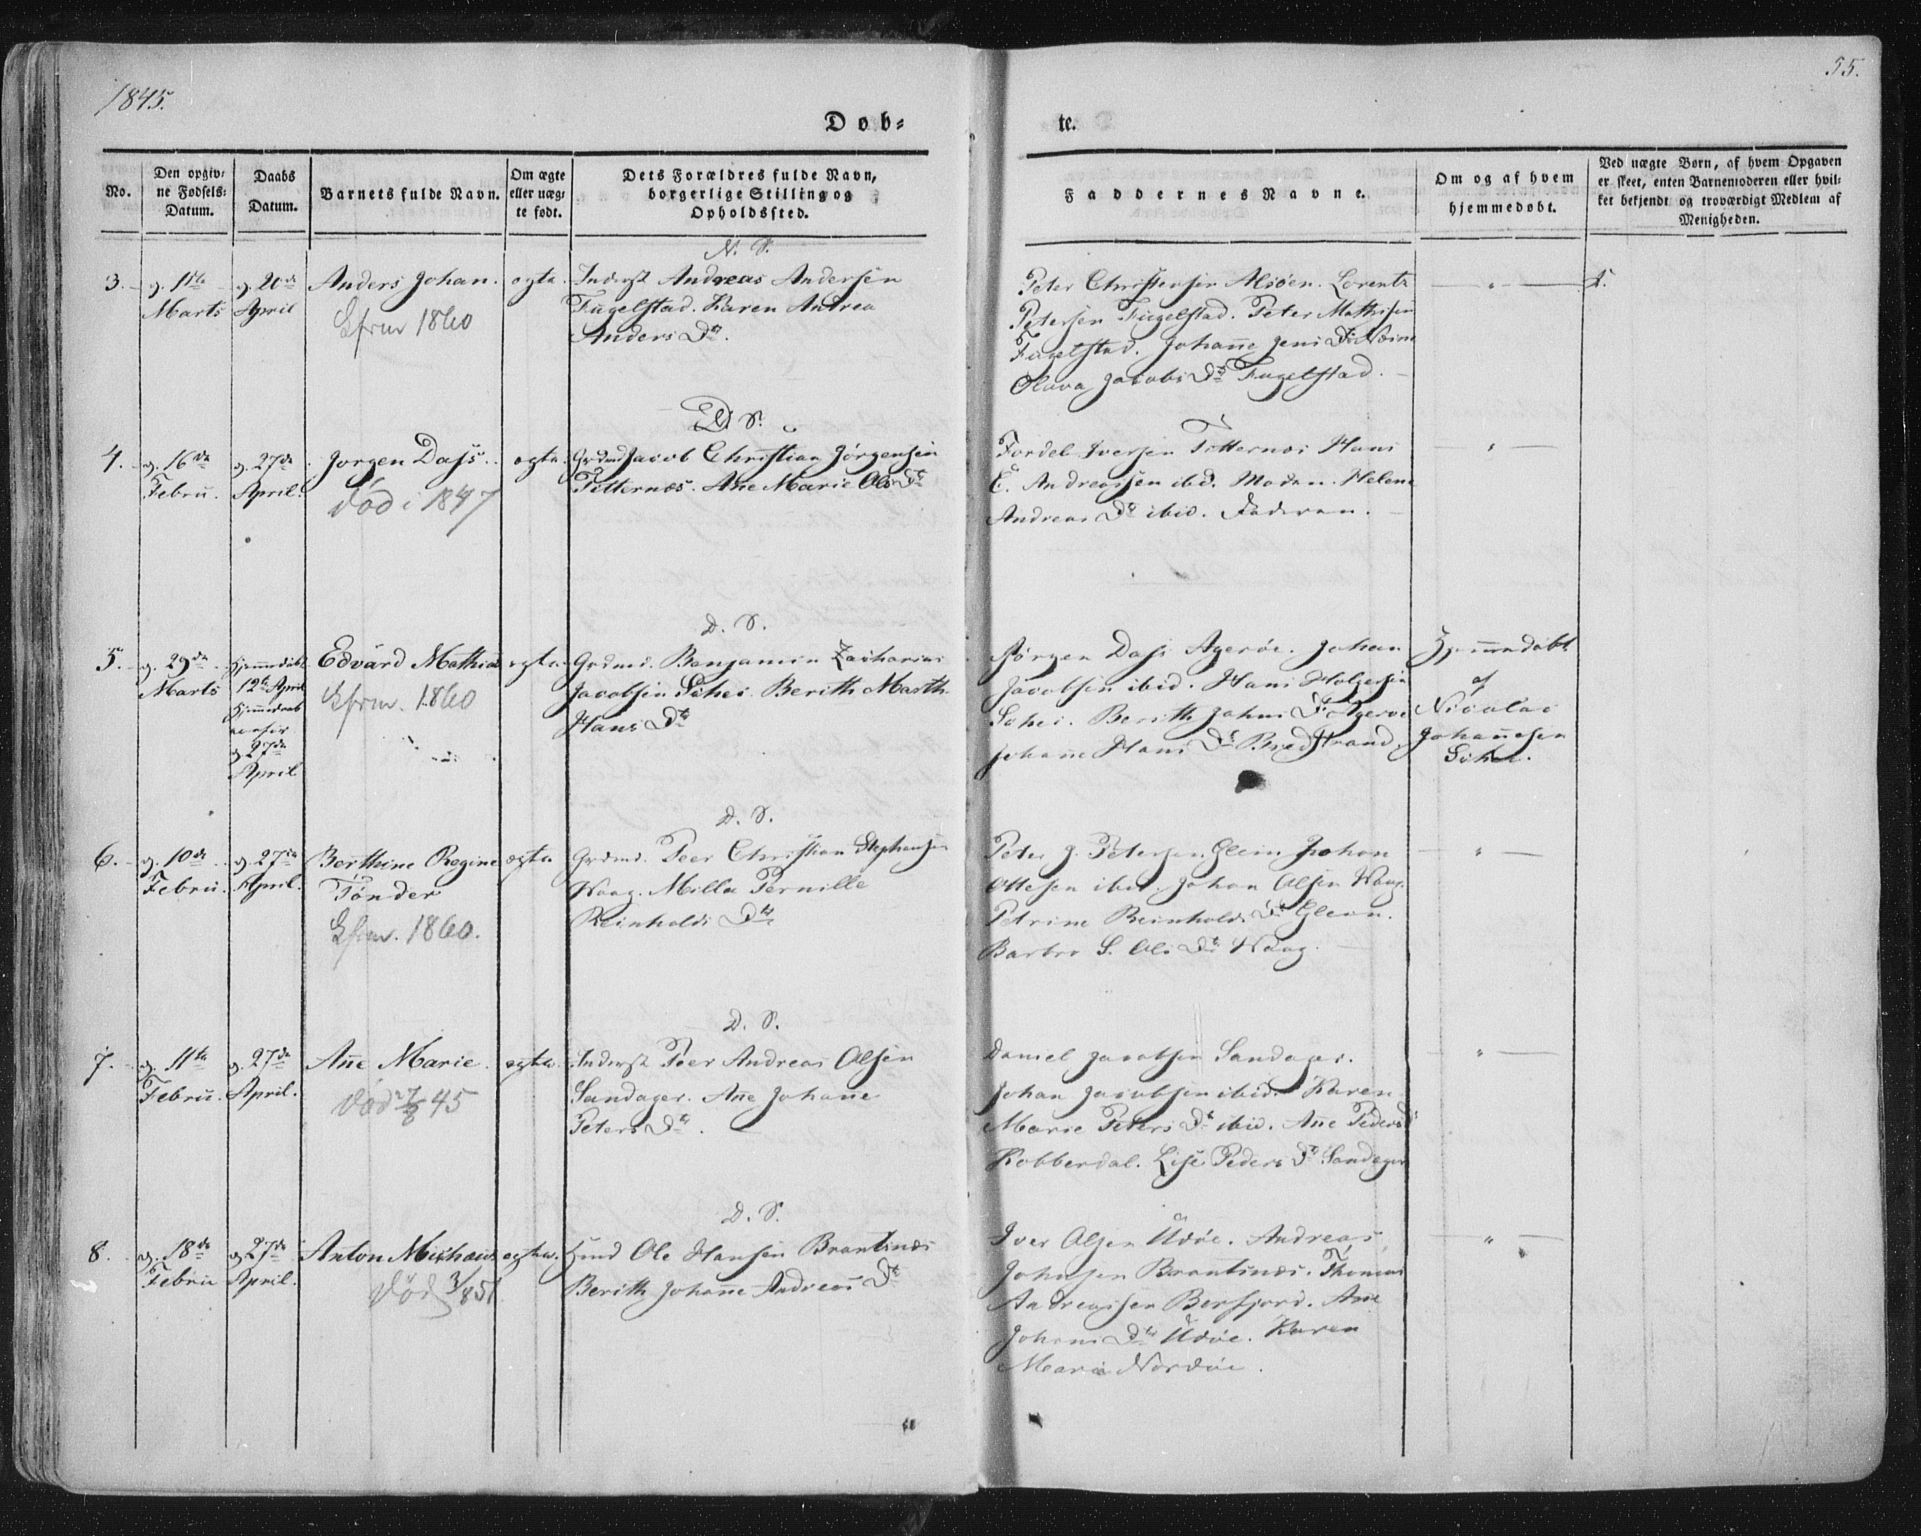 1845.
55.
Døb-
te.
No.
Den opgiv-
ne Fødsels-
Datum.
Daabs
Datum.
Barnets fulde Navn.
Om ægte
eller uæg-
te født.
Dets Forældres fulde Navn,
borgerlige Stilling og
Opholdssted.
Faddernes Navne.
Om og af hvem
hjemmedøbt.
Ved uægte Børn, af hvem Opgaven
er skeet, enten Barnemoderen eller hvil-
ket bekjendt og troværdigt Medlem af
Menigheden.
N. S.
3.
11te
Marts
20de
April
Anders Johan.
1860
ægte.
Inderst Andreas Andersen
Fugelstad. Karen Andrea
Anders Dtr.
Peter Christensen Alsöen. Lorentz
Petersen Fugelstad. Peter Mathisen
Fugelstad. Johanne Jens Dtr
Olava Jacobs Dtr Fugelstad.
D. S.
4.
16de
Febru.
27de
April.
Jørgen Dass.
død i 1847
ægte.
Grdmd Jacob Christian Jørgensen
Tetternæs. Ane Marie Ols Dtr
Fordel Iversen Tetternæs Hans
E. Andreassen ibid. Moderen. Helene
Andreas Dtr ibid. Faderen.
D. S.
5.
29de
Marts
Hjemmedøbt
12te April
27de
April
Edvard Mathias
1860
ægte.
Grdmd. Benjamin Zacharias
Jacobsen Søhei. Berith Marth.
Hans Dtr
Jørgen Dass Agerøe. Johan
Jacobsen ibid. Hans Holgersen
Søhei. Berith Johns Dtr Agerøe
Johanne Hans Dtr Bredstrand.
Hjemmedøbt
af
Nicolai
Johannesen
Søhei.
D. S.
6.
10de
Febru.
27de
April.
Berthine Regine
Tønder
1860.
ægte
Grdmd. Peer Christian Stephansen
Waag. Milla Pernille
Reinholds Dtr
Peter J. Petersen Glein Johan
Ottesen ibid. Johan Olsen Waag.
Petrine Reinholds Dtr Glein.
Barbro S. Ols Dtr Waag.
D. S.
7.
11te
Febru.
27de
April.
Ane Marie.
død 45
ægte.
Inderst Peer Andreas Olsen
Sandager. Ane Johanne
Peters Dtr.
Daniel Jacobsen Sandager.
Johan Jacobsen ibid. Karen
Marie Peters Dtr ibid. Ane Peders
Kobberdal. Lise Peders Dtr Sandager
D. S.
8.
18de
Febru
27de
April.
Anton
død 851
ægte.
Ole Hansen Brantsnæs
Berith Johanne Andreas Dtr
Iver Olsen Udøe. Andreas
Johnsen Brantsnæs. Thomas
Andreassen Bersfjord. Ane
Johans Dtr Udøe. Karen
Marie Nordøe.